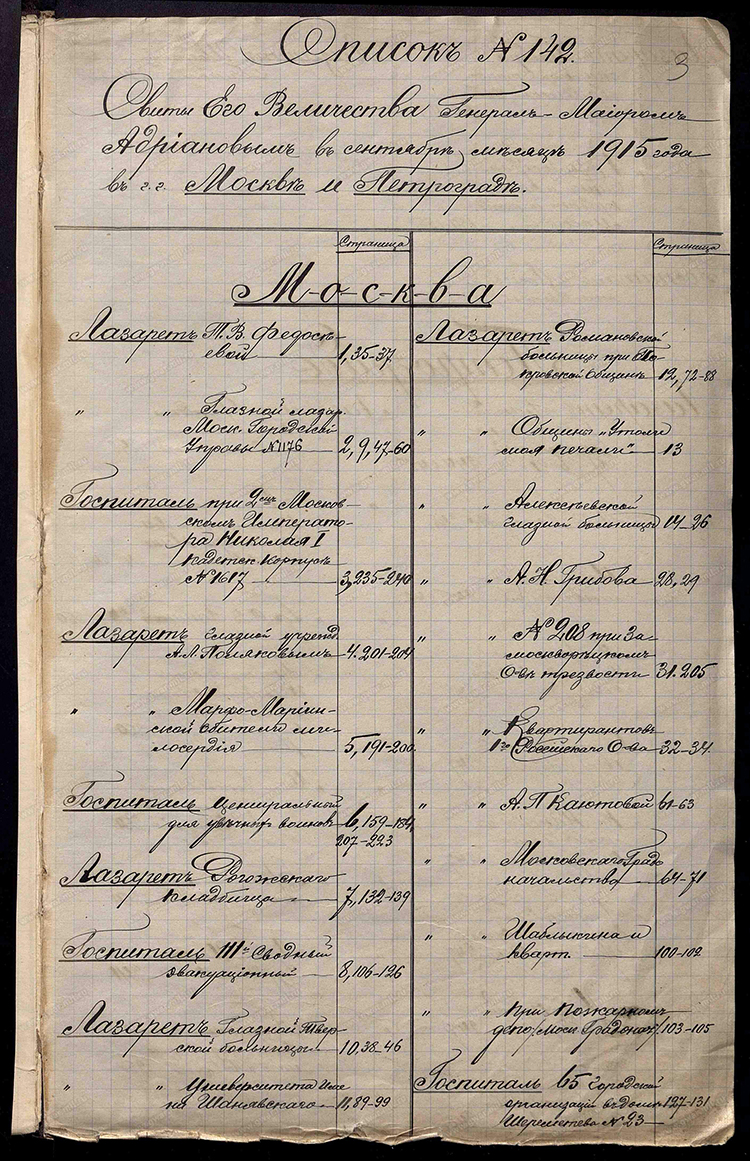 Списокъ № 142.
3
Свиты Его Величества Генералъ-Маіоромъ
Адріановымъ въ сентябрѣ мѣсяцѣ 1915 года
въ г.г. Москвѣ и Петроградѣ.
Страница
Москва
Лазаретъ Т. В. Федосѣ-
евой 1, 35-37
" " Глазной лазар.
Моск. Городской
Управы №1176 2, 9, 47-60
Госпиталь при 2омъ Москов-
скомъ Императо-
ра Николая I
кадетск. Корпусѣ
№ 1617 3, 235-240
Лазаретъ глазной учрежд.
А. Л. Поляковымъ 4. 201-204
" " Марфо-Маріин-
ской обители ми-
лосердія 5, 191-200
Госпиталь центральный
для увѣчныхъ воиновъ 6, 159-184,
207-223
Лазаретъ Рогожскаго
кладбища 7, 132-139
Госпиталь 111й Сводный
эвакуаціонный 8, 106-126
Лазаретъ Глазной Твер-
ской больницы 10, 38-46
" " Университета Име-
ни Шанявскаго 11, 89-99
Страница
Лазаретъ Романовской
больницы при По-
кровской Общинѣ 12, 72-88
" " Общины „Утоли
моя печали" 13
" " Алексѣевской
глазной больницы 14-26
" " А. Н. Грибова 28, 29
" " № 208 при За-
москворѣцкомъ
О-вѣ трезвости 31. 205
" " Квартирантовъ
1го Россійскаго О-ва 32-34
" " А. П. Каютовой 61-63
" " Московскаго Градо-
начальства 64-71
" " Шаблыкина и
Кварт. 100-102
" " При Пожарномъ
депо, Моск. Градонач. 103-105
Госпиталь 65 Городской
организаціи въ домѣ 127-131
Шереметева № 23